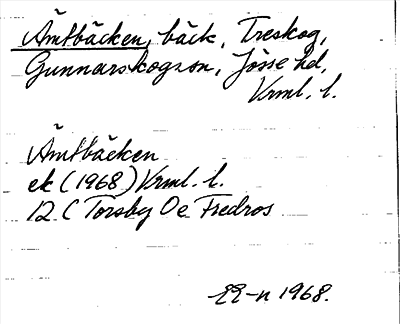 Ämtbäcken, bäck, Treskog,
Gunnarskogssn, Jösse hd,
Vrml. l.
Ämtbäcken
ek (1968) Vrml. l.
12 C Torsby Oe Fredros
1968.